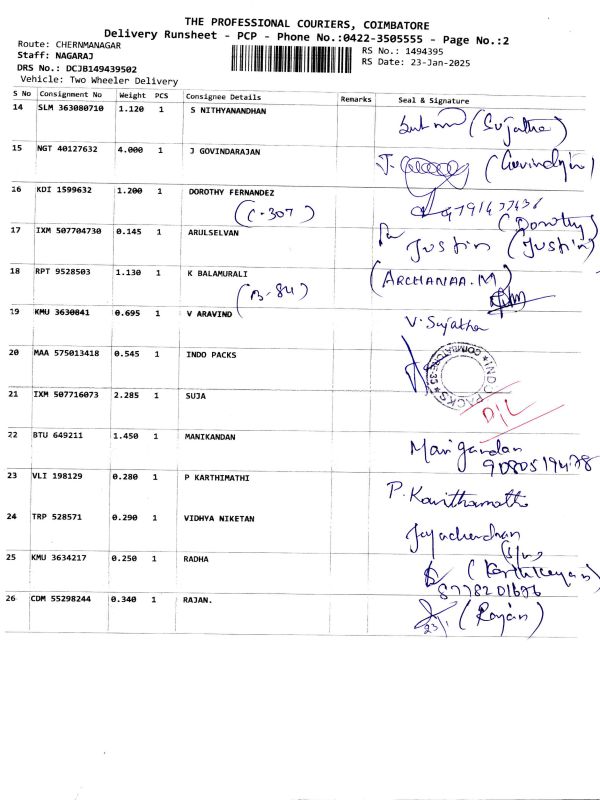 THE PROFESSIONAL COURIERS, COIMBATORE
Delivery Runsheet - PCP - Phone No.:0422-3505555 - Page No.:2
Route: CHERNMANAGAR
Staff: NAGARAJ
DRS No.: DCJB149439502
Vehicle: Two Wheeler Delivery
RS No.: 1494395
RS Date: 23-Jan-2025
S No Consignment No Weight PCS Consignee Details Remarks Seal & Signature
14 SLM 363080710 1.120 1 S NITHYANANDHAN
(Sujatha)
15 NGT 40127632 4.000 1 J GOVINDARAJAN
J. (Govindrjn)
16 KDI 1599632 1.200 1 DOROTHY FERNANDEZ
(C-307)
(Dorothy)
17 IXM 507704730 0.145 1 ARULSELVAN
Justin (Justin)
18 RPT 9528503 1.130 1 K BALAMURALI
(B-84)
(ARCHANAA.M)
19 KMU 3630841 0.695 1 V ARAVIND
V. Sujatha
20 MAA 575013418 0.545 1 INDO PACKS
* INDO PACKS * COIMBATORE-35
21 IXM 507716073 2.285 1 SUJA
D/L
22 BTU 649211 1.450 1 MANIKANDAN
Manigandan
9080519478
23 VLI 198129 0.280 1 P KARTHIMATHI
P. Kavithamathi
24 TRP 528571 0.290 1 VIDHYA NIKETAN
Jayachandran
25 KMU 3634217 0.250 1 RADHA
(Karthikeyan)
8778201676
26 CDM 55298244 0.340 1 RAJAN.
23/1 (Rajan)